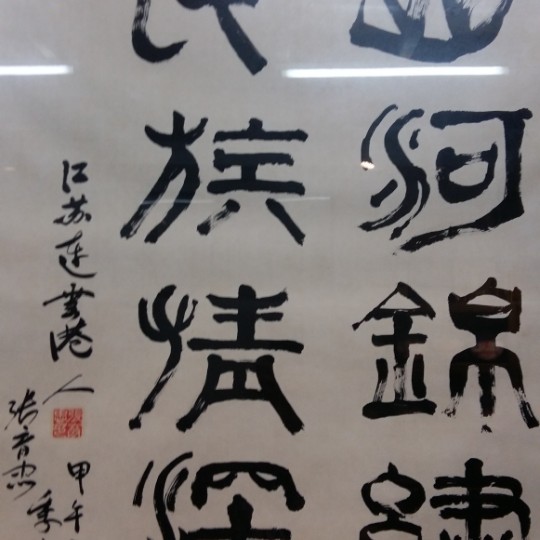 山河錦繡
民族情深
江苏连雲港人
张音忠
甲午季